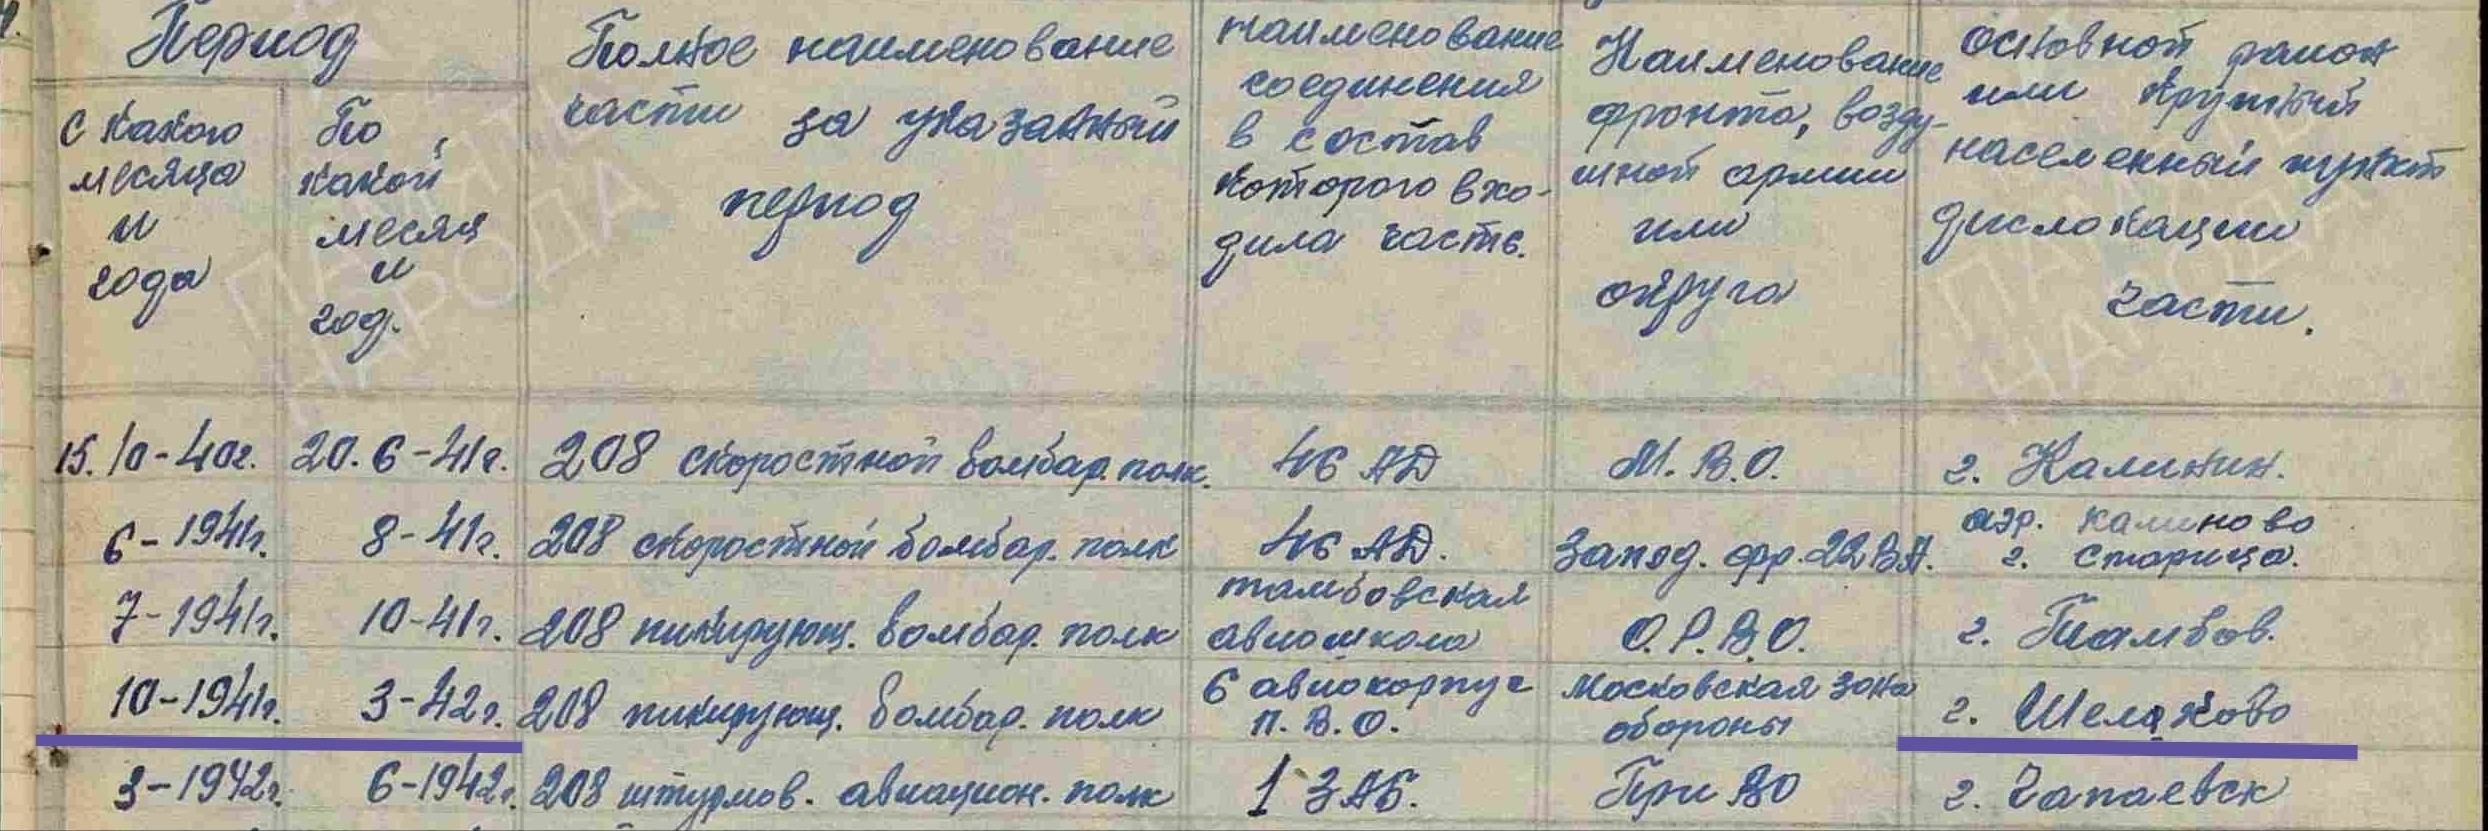 Период
С какого
месяца
и
года
По
какой
месяц
и
год.
Полное наименование
части за указанный
период
Наименование
соединения
в состав
которого вхо-
дила часть.
Наименование
фронта, возду-
шной армии
или
округа
Основной район
или крупный
населенный пункт
дислокации
части.
15.10-40г. 20.6-41г. 208 скоростной бомбар. полк. 46 АД М.В.О. г. Калинин.
6-1941г. 8-41г. 208 скоростной бомбар. полк 46 АД. Запад. фр. 22 ВА. аэр. Калиново
г. Старица.
7-1941г. 10-41г. 208 пикирующ. бомбар. полк тамбовская
авиошкола О.Р.В.О. г. Тамбов.
10-1941г. 3-42г. 208 пикирующ. бомбар. полк 6 авиокорпус
П.В.О. Московская зона
обороны г. Шелсково
3-1942г. 6-1942г. 208 штурмов. авиацион. полк 1 ЗАБ. При ВО г. Чапаевск
ПАМЯТЬ
НАРОДА
ПАМЯТЬ
НАРОДА